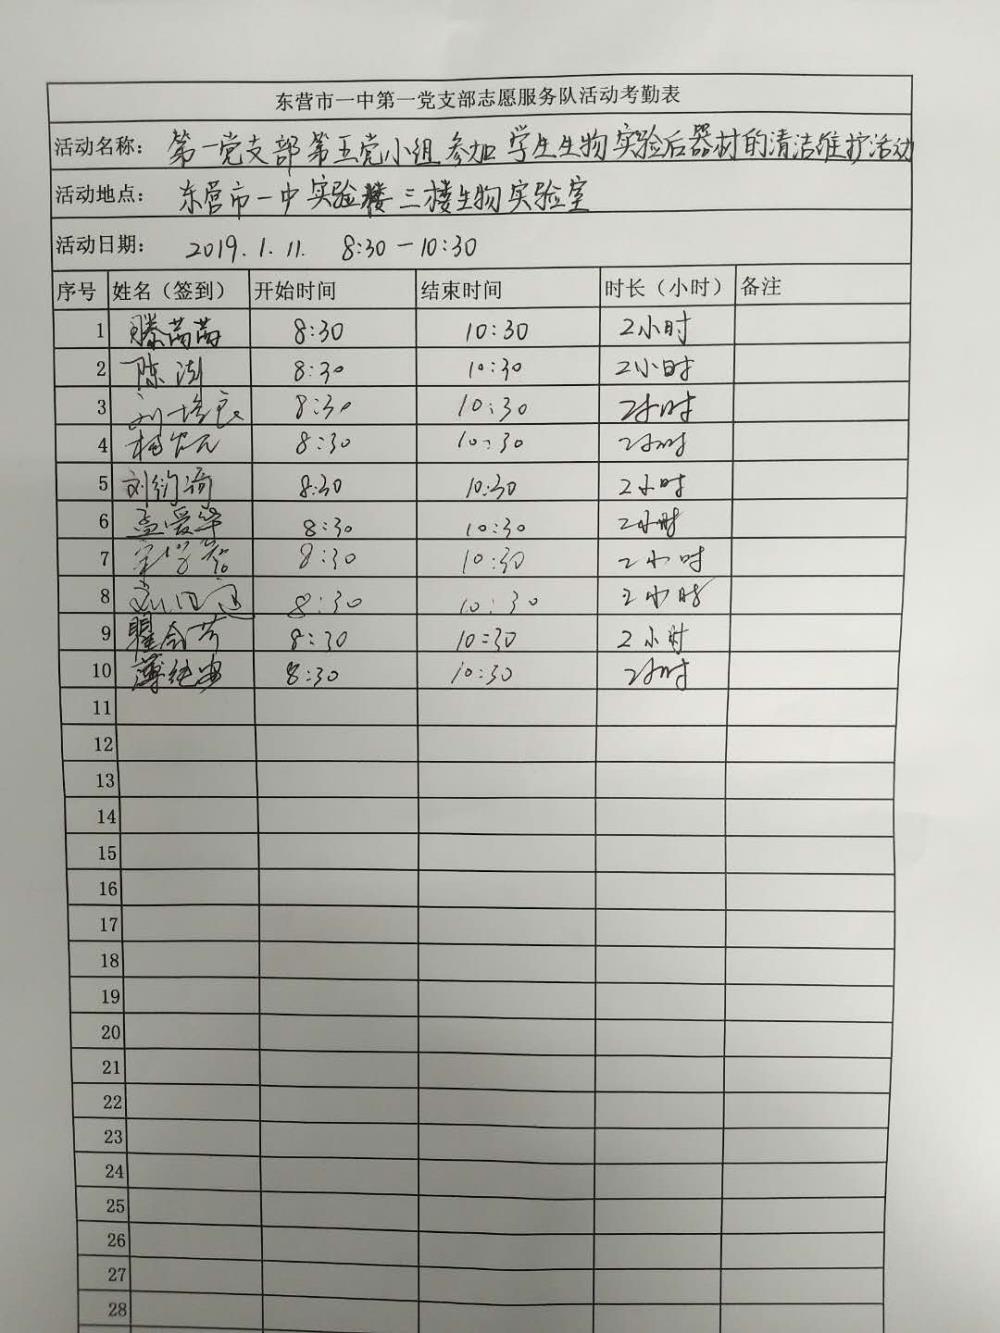 东营市一中第一党支部志愿服务队活动考勤表
活动名称： 第一党支部第五党小组参加学生生物实验后器材的清洁维护活动
活动地点： 东营市一中实验楼三楼生物实验室
活动日期： 2019.1.11. 8:30-10:30
序号 姓名（签到） 开始时间 结束时间 时长（小时） 备注
1 滕茜茜 8:30 10:30 2小时
2 陈澍 8:30 10:30 2小时
3 刘培良 8:30 10:30 2小时
4 8:30 10:30 2小时
5 刘钧涛 8:30 10:30 2小时
6 孟爱华 8:30 10:30 2小时
7 8:30 10:30 2小时
8 8:30 10:30 2小时
9 8:30 10:30 2小时
10 8:30 10:30 2小时
11
12
13
14
15
16
17
18
19
20
21
22
23
24
25
26
27
28